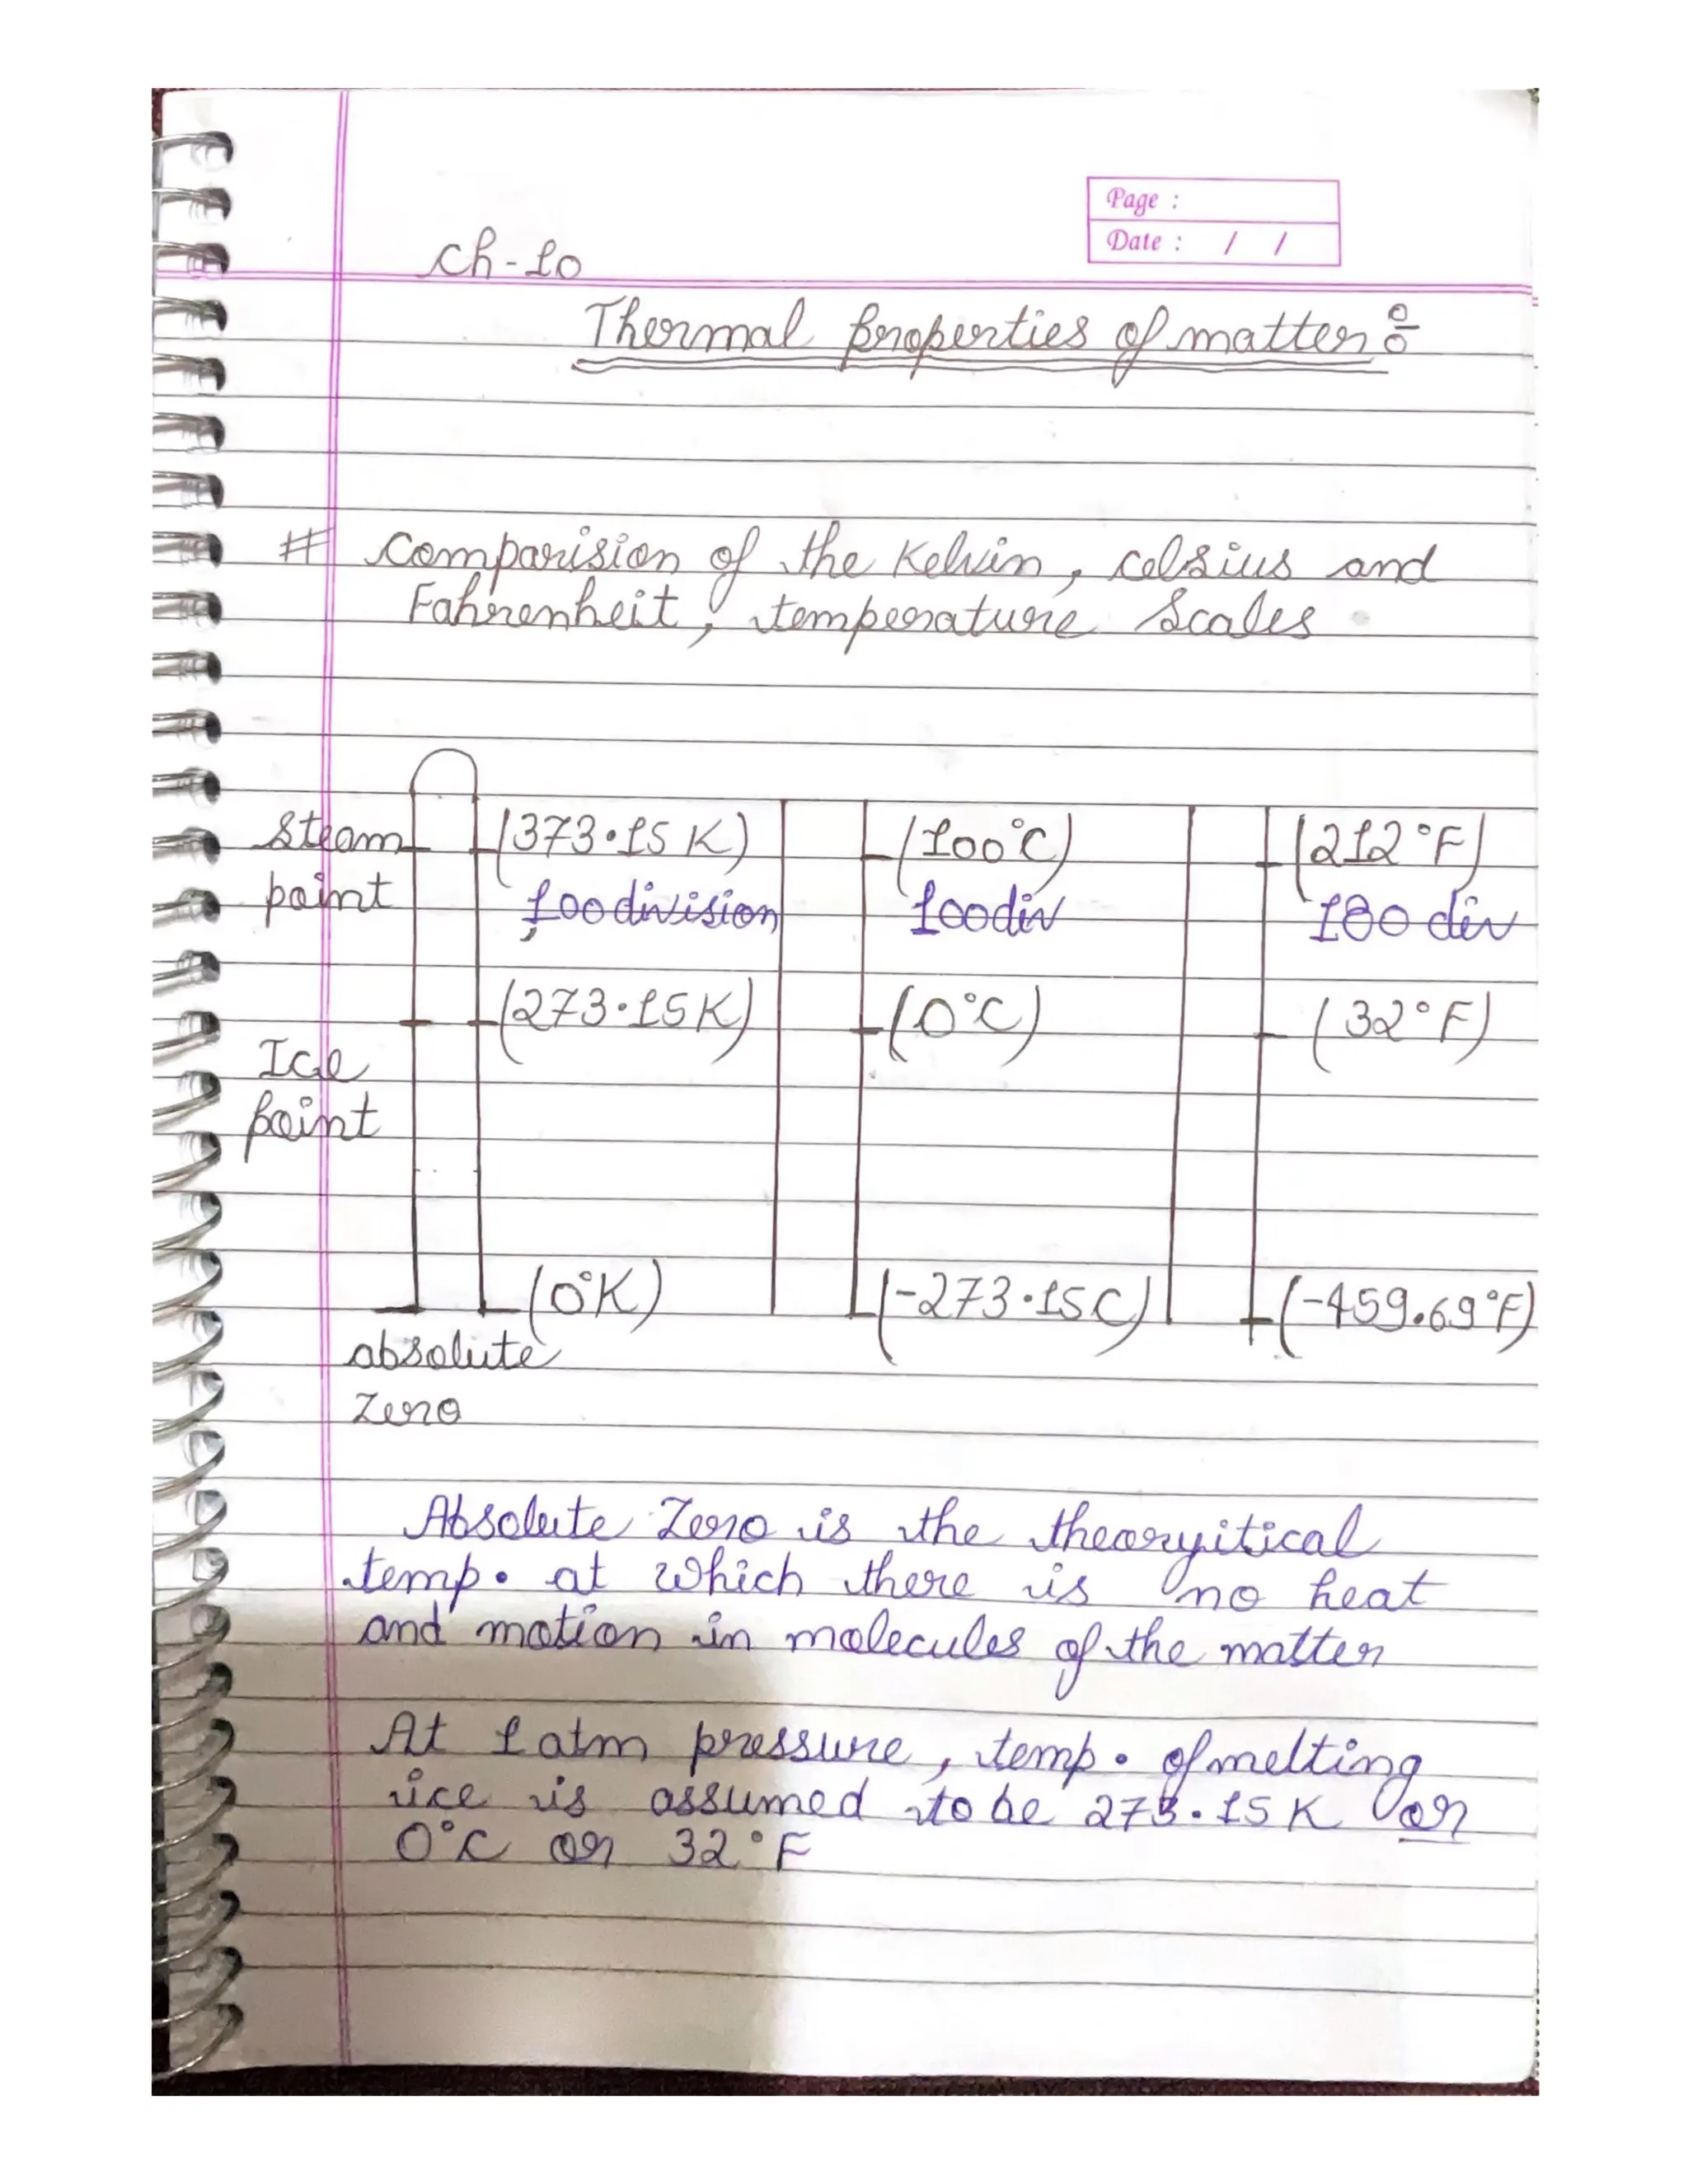 Page :
Date : / /
Ch-10
Thermal properties of matter :-
# Comparision of the Kelvin, celsius and
Fahrenheit, temperature Scales
Steam (373.15 K) (100°C) (212°F)
point 100 division 100 div 180 div
(273.15K) (0°C) (32°F)
Ice
point
(0°K) (-273.15C) (-459.69°F)
absolute
Zero
Absolute Zero is the theoryitical
temp. at which there is no heat
and motion in molecules of the matter
At 1 atm pressure, temp. of melting
ice is assumed to be 273.15 K or
0°C or 32°F